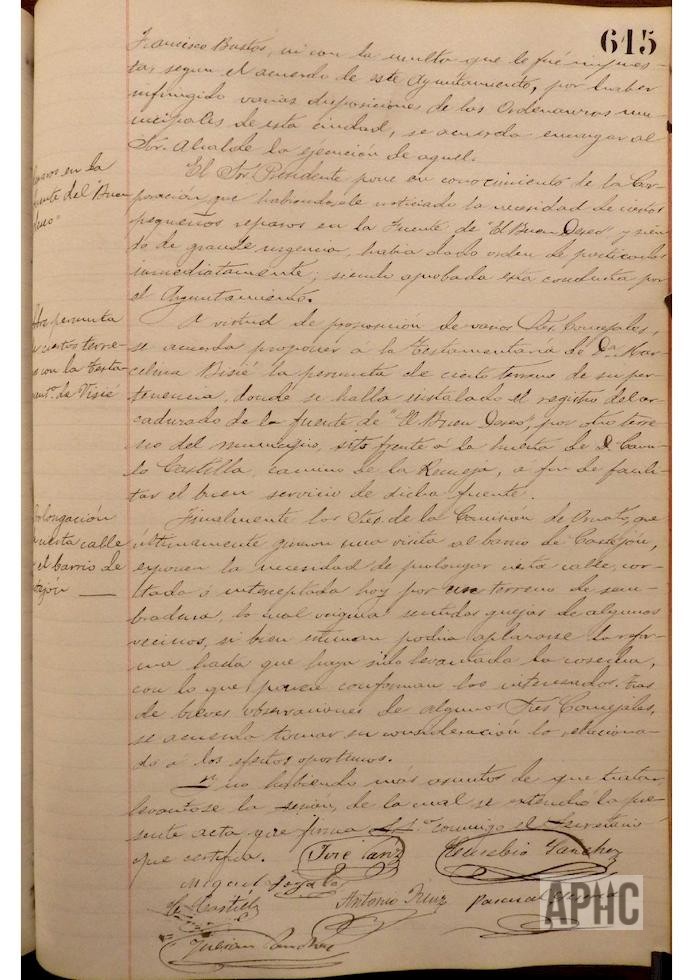 645
Francisco Bustos, ni con la multa que le fué impues-
ta, segun el acuerdo de este Ayuntamiento, por haber
infringido varias disposiciones de las Ordenanzas mu-
nicipales de esta ciudad, se acuerda encargar al
Sor. Alcalde la ejecución de aquel.
paros en la
uente del "Buen
eseo"
El Sor. Presidente pone en conocimiento de la Cor-
poración que habiendosele noticiado la necesidad de ciertos
pequeños reparos en la Fuente de "El Buen Deseo" y sien-
do de grande urgencia, habia dado orden de practicarlos
inmediatamente; siendo aprobada esta conducta por
el Ayuntamiento.
permuta
ciertos terre-
s con la testa-
de Visié
A virtud de proposición de varios Sres. Concejales,
se acuerda proponer á la Testamentaria de Da. Mar-
celina Visié la permuta de cierto terreno de su per-
tenencia, donde se halla instalado el registro del ar-
cadurado de la fuente de "El Buen Deseo", por otro terre-
no del municipio, sito frente á la huerta de D. Cami-
lo Castilla, camino de la Remeja, a fin de facili-
tar el buen servicio de dicha fuente.
olongación
cierta calle
el barrio de
ejón
Finalmente los Sres. de la Comisión de Ornato, que
últimamente giraron una visita al barrio de Castejón,
exponen la necesidad de prolongar cierta calle, cor-
tada ó interceptada hoy por un terreno de sem-
bradura, lo cual origina sentidas quejas de algunos
vecinos, si bien estiman podria aplazarse la refor-
ma hasta que haya sido levantada la cosecha,
con lo que parecen conforman los interesados. Tras
de breves observaciones de algunos Sres Concejales,
se acuerda tomar en consideración lo relaciona-
do a los efectos oportunos.
Y no habiendo más asuntos de que tratar
levantose la sesión, de la cual se extendió la pre-
sente acta que firma S. Sa. conmigo el Secretario
que certifico.
José Sanz
Eusebio Sanchez
Miguel
C. Castilla
Antonio Ruiz
Pascual
Julian Sanchez
APHC